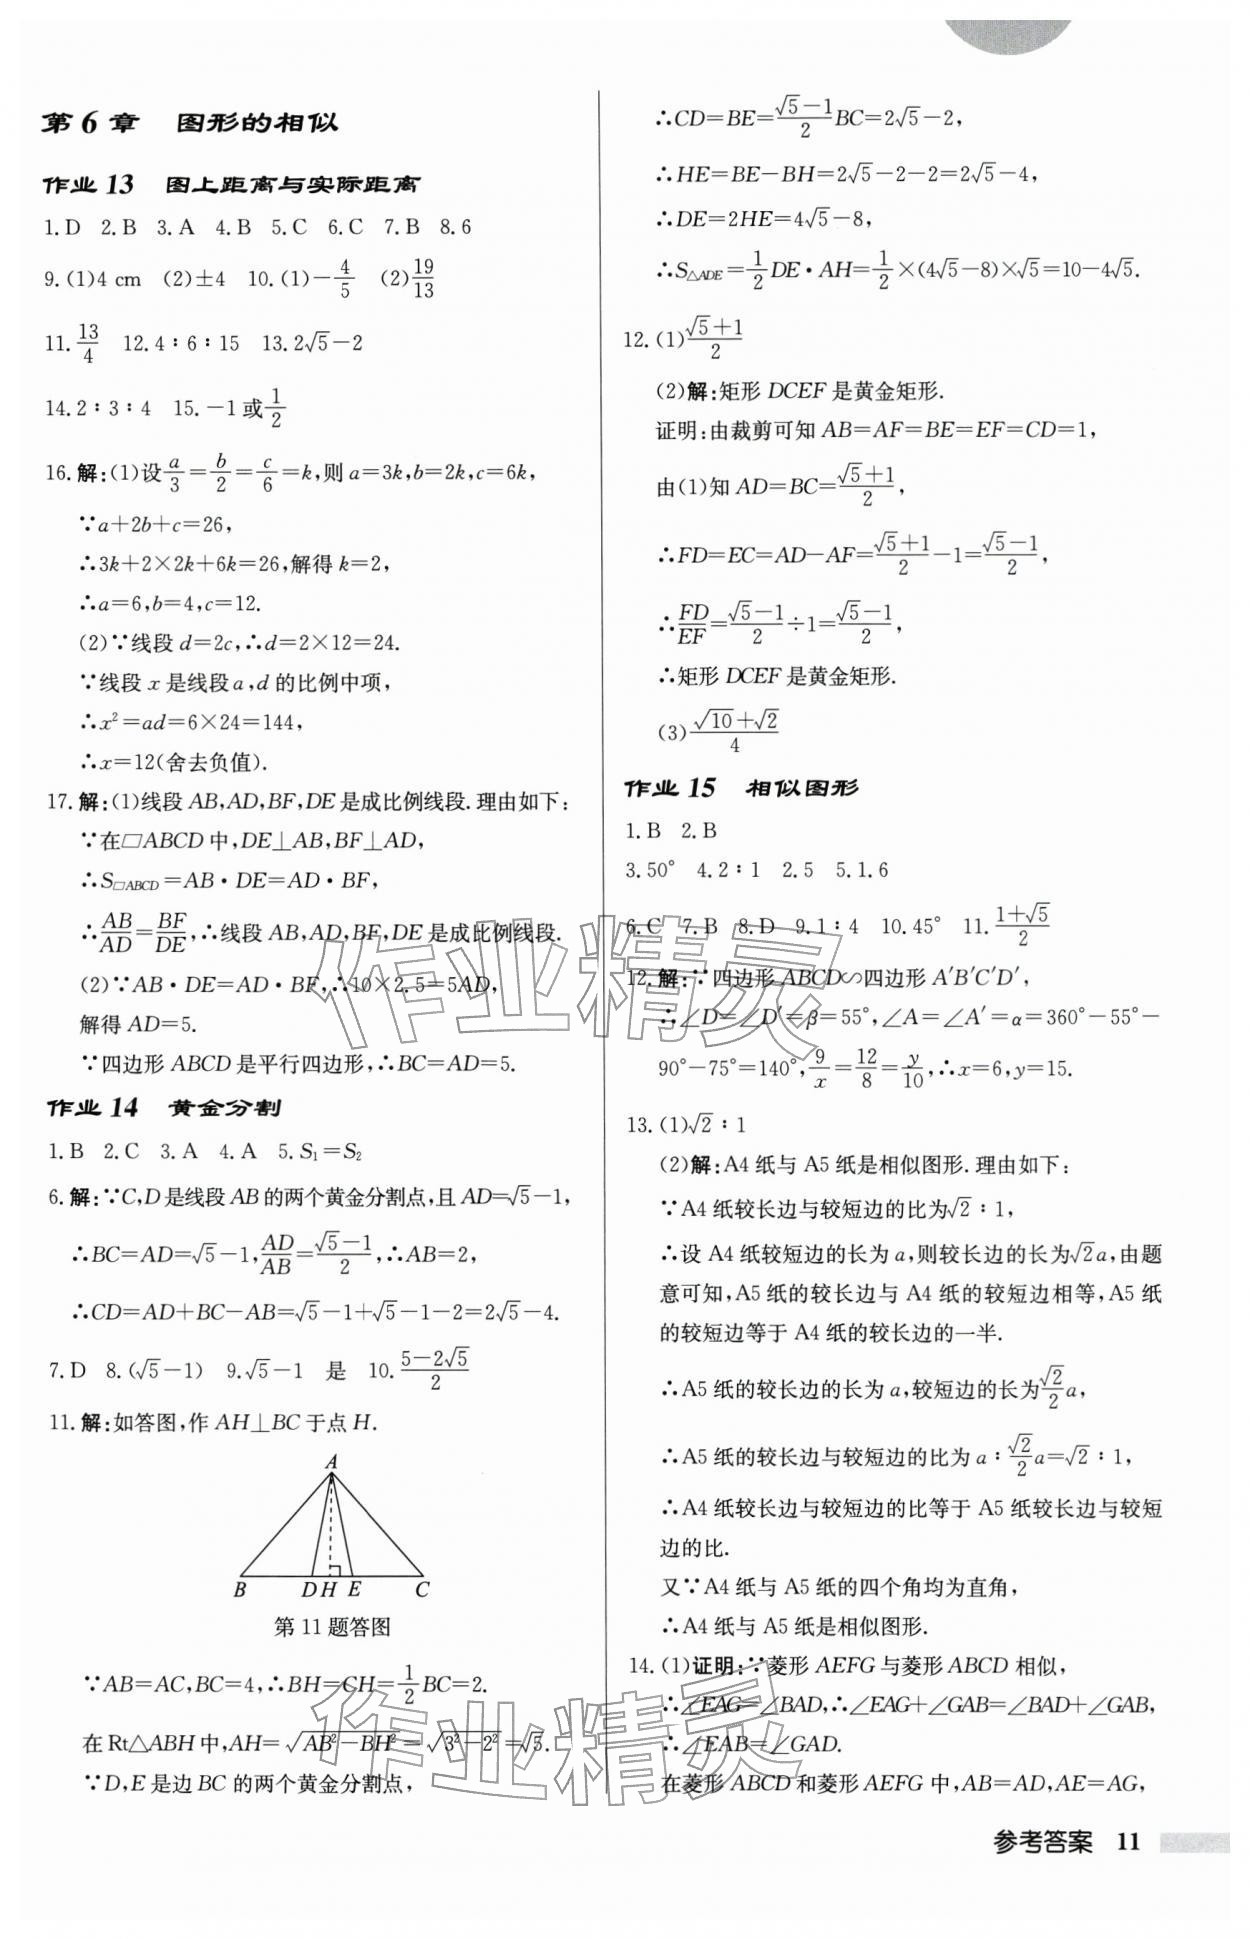 第 6 章　图形的相似
作业 13　图上距离与实际距离
1.D　2.B　3.A　4.B　5.C　6.C　7.B　8.6
9.(1)4 cm　(2)±4　10.(1)−4/5　(2)19/13
11.13/4　12.4∶6∶15　13.2√5−2
14.2∶3∶4　15.−1或1/2
16.解:(1)设a/3=b/2=c/6=k,则a=3k,b=2k,c=6k,
∵a+2b+c=26,
∴3k+2×2k+6k=26,解得k=2,
∴a=6,b=4,c=12.
(2)∵线段d=2c,∴d=2×12=24.
∵线段x是线段a,d的比例中项,
∴x²=ad=6×24=144,
∴x=12(舍去负值).
17.解:(1)线段AB,AD,BF,DE是成比例线段.理由如下:
∵在□ABCD中,DE⊥AB,BF⊥AD,
∴S□ABCD=AB·DE=AD·BF,
∴AB/AD=BF/DE,∴线段AB,AD,BF,DE是成比例线段.
(2)∵AB·DE=AD·BF,∴10×2.5=5AD,
解得AD=5.
∵四边形ABCD是平行四边形,∴BC=AD=5.
作业 14　黄金分割
1.B　2.C　3.A　4.A　5.S₁=S₂
6.解:∵C,D是线段AB的两个黄金分割点,且AD=√5−1,
∴BC=AD=√5−1,AD/AB=(√5−1)/2,∴AB=2,
∴CD=AD+BC−AB=√5−1+√5−1−2=2√5−4.
7.D　8.(√5−1)　9.√5−1　是　10.(5−2√5)/2
11.解:如答图,作AH⊥BC于点H.
A
B　D H E　C
第11题答图
∵AB=AC,BC=4,∴BH=CH=1/2BC=2.
在Rt△ABH中,AH=√(AB²−BH²)=√(3²−2²)=√5.
∵D,E是边BC的两个黄金分割点,
∴CD=BE=(√5−1)/2BC=2√5−2,
∴HE=BE−BH=2√5−2−2=2√5−4,
∴DE=2HE=4√5−8,
∴S△ADE=1/2DE·AH=1/2×(4√5−8)×√5=10−4√5.
12.(1)(√5+1)/2
(2)解:矩形DCEF是黄金矩形.
证明:由裁剪可知AB=AF=BE=EF=CD=1,
由(1)知AD=BC=(√5+1)/2,
∴FD=EC=AD−AF=(√5+1)/2−1=(√5−1)/2,
∴FD/EF=(√5−1)/2÷1=(√5−1)/2,
∴矩形DCEF是黄金矩形.
(3)(√10+√2)/4
作业 15　相似图形
1.B　2.B
3.50°　4.2∶1　2.5　5.1.6
6.C　7.B　8.D　9.1∶4　10.45°　11.(1+√5)/2
12.解:∵四边形ABCD∽四边形A′B′C′D′,
∴∠D=∠D′=β=55°,∠A=∠A′=α=360°−55°−
90°−75°=140°,9/x=12/8=y/10,∴x=6,y=15.
13.(1)√2∶1
(2)解:A4纸与A5纸是相似图形.理由如下:
∵A4纸较长边与较短边的比为√2∶1,
∴设A4纸较短边的长为a,则较长边的长为√2a,由题
意可知,A5纸的较长边与A4纸的较短边相等,A5纸
的较短边等于A4纸的较长边的一半.
∴A5纸的较长边的长为a,较短边的长为√2/2a,
∴A5纸的较长边与较短边的比为a∶√2/2a=√2∶1,
∴A4纸较长边与较短边的比等于A5纸较长边与较短
边的比.
又∵A4纸与A5纸的四个角均为直角,
∴A4纸与A5纸是相似图形.
14.(1)证明:∵菱形AEFG与菱形ABCD相似,
∴∠EAG=∠BAD,∴∠EAG+∠GAB=∠BAD+∠GAB,
∴∠EAB=∠GAD.
在菱形ABCD和菱形AEFG中,AB=AD,AE=AG,
参考答案　11
作业精灵
作业精灵